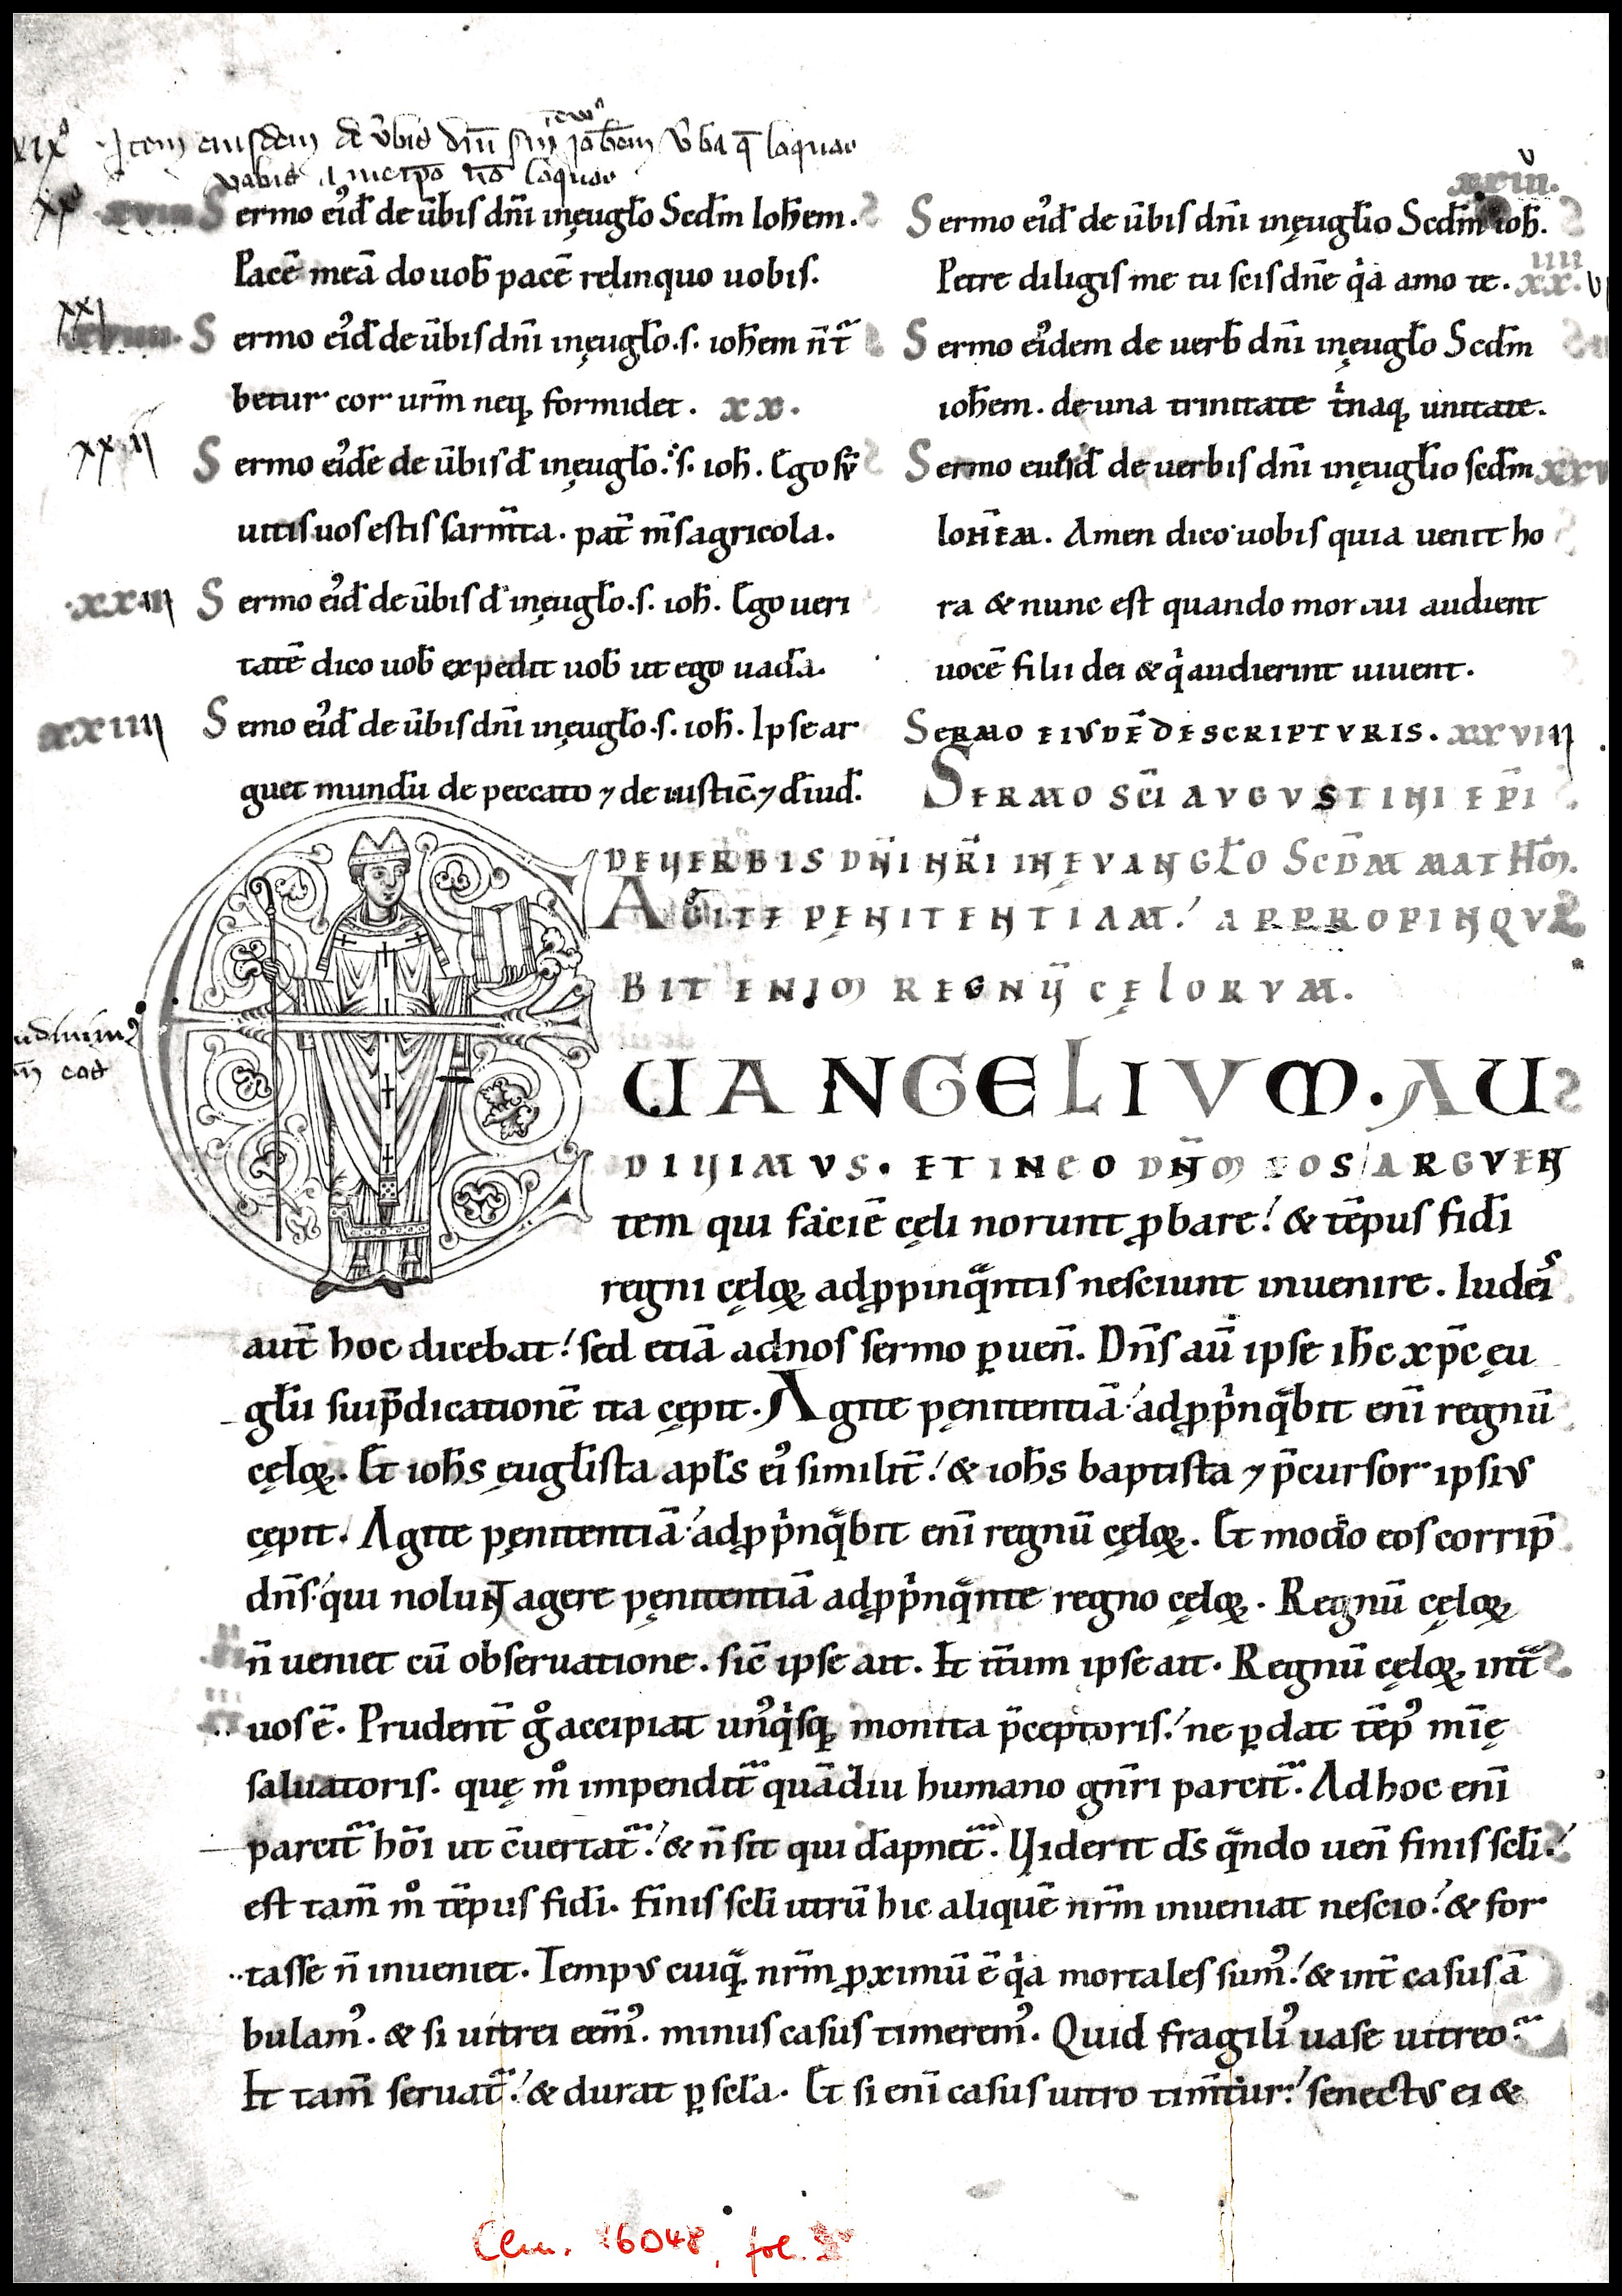 xixꝰ Item eiusdem de v̄bis dn̄i sm̄ ioh̄em v̄ba q̄ loquor
vobis a meip̄o nō loquor
xx Sermo eiꝰd̄ de ūbis dn̄i in ęugl̄o Scd̄m Ioh̄em.
Pacē meā do uob̄ pacē relinquo uobis.
xxi Sermo eiꝰd̄ de ūbis dn̄i in ęugl̄o. s. ioh̄em n̄ t̄
betur cor ur̄m neq; formidet. xx.
xxii Sermo eiꝰdē de ūbis d̄ in ęugl̄o. s. ioh̄. Ego sū
uitis uos estis sarm̄ta. pat̄ m̄s agricola.
xxiii Sermo eiꝰd̄ de ūbis d̄ in ęugl̄o. s. ioh̄. Ego ueri
tatē dico uob̄ expedit uob̄ ut ego uadā.
xxiiii Semo eiꝰd̄ de ūbis dn̄i in ęugl̄o. s. ioh̄. Ipse ar
guet mundū de peccato ⁊ de iustic̄. ⁊ d̄ iud̄.
Sermo eiꝰd̄ de ūbis dn̄i in ęugl̄io Scd̄m ioh̄.
Petre diligis me tu scis dn̄e q̇a amo te.
Sermo eiꝰdem de uerb̄ dn̄i in ęugl̄o Scd̄m
ioh̄em. de una trinitate ṫnaq; unitate.
Sermo euisd̄ de uerbis dn̄i in ęugl̄io scd̄m
Ioh̄em. Amen dico uobis quia uenit ho
ra & nunc est quando mortui audient
uocē filii dei & q̇ audierint uiuent.
SERMO EIVDĒ DE SCRIPTVRIS. xxvii
SERMO SC̄I AVGVSTINI EP̄I
DE UERBIS DN̄I NR̄I IN ĘVANGL̄O SCD̄M MATH̄M.
AGITE PĘNITENTIAM. APPROPINQVA
BIT ENIM REGNŪ CĘLORVM.
EUANGELIVM. AU
DIUIMVS. ET IN EO DN̄M EOS ARGVEN
tem qui faciē cęli norunt ꝓbare. & tēpus fid̄i
regni cęloꝝ adꝓpinqᵃntis nesciunt inuenire. Iudeiˢ
aut̄ hoc dicebat. sed etiā ad nos sermo ꝑuen̄. Dn̄s aū ipse ih̄c xp̄c ęu
gl̄ii sui p̄dicationē ita cępit. Agite pęnitentiā. adꝓṗnqᵃbit enī regnū
cęloꝝ. Et ioh̄s ęugl̄ista apl̄s eiꝰ similit̄. & ioh̄s baptista ⁊ p̄cursor ipsius
cępit. Agite pęnitentiā. adꝓṗnqᵃbit enī regnū cęloꝝ. Et modo eos corrip̄
dn̄s. qui nolunt agere pęnitentiā adꝓṗnqᵃnte regno cęloꝝ. Regnū cęloꝝ
n̄ ueniet cū obseruatione. sic̄ ipse ait. Et it̄um ipse ait. Regnū cęloꝝ int̄
uos ē. Prudent̄ gͦ accipiat unꝰq̇sq; monita p̄ceptoris. ne ꝑdat tēpꝰ mīę
saluatoris. quę mͦ impendit̄ quādiu humano gn̄ri parcit̄. Ad hoc enī
parcit̄ hōi ut c̄uertat̄. & n̄ sit qui dāpnet̄. Uiderit d̄s qᵃndo uen̄ finis scl̄i.
est tam̄ mͦ tēpus fid̄i. finis scl̄i utrū hic aliquē nr̄m inueniat nescio. & for
tasse n̄ inueniet. Tempus cuiq; nr̄m ꝓximū ē q̇a mortales sumꝰ. & int̄ casus ā
bulamꝰ. & si uitrei eēmꝰ. minus casus timeremꝰ. Quid fragiliꝰ uase uitreo.
Et tam̄ seruat̄. & durat ꝑ scl̄a. Et si enī casus uitro tim̄tur. senectus ei &
Clm. 16048, fol.